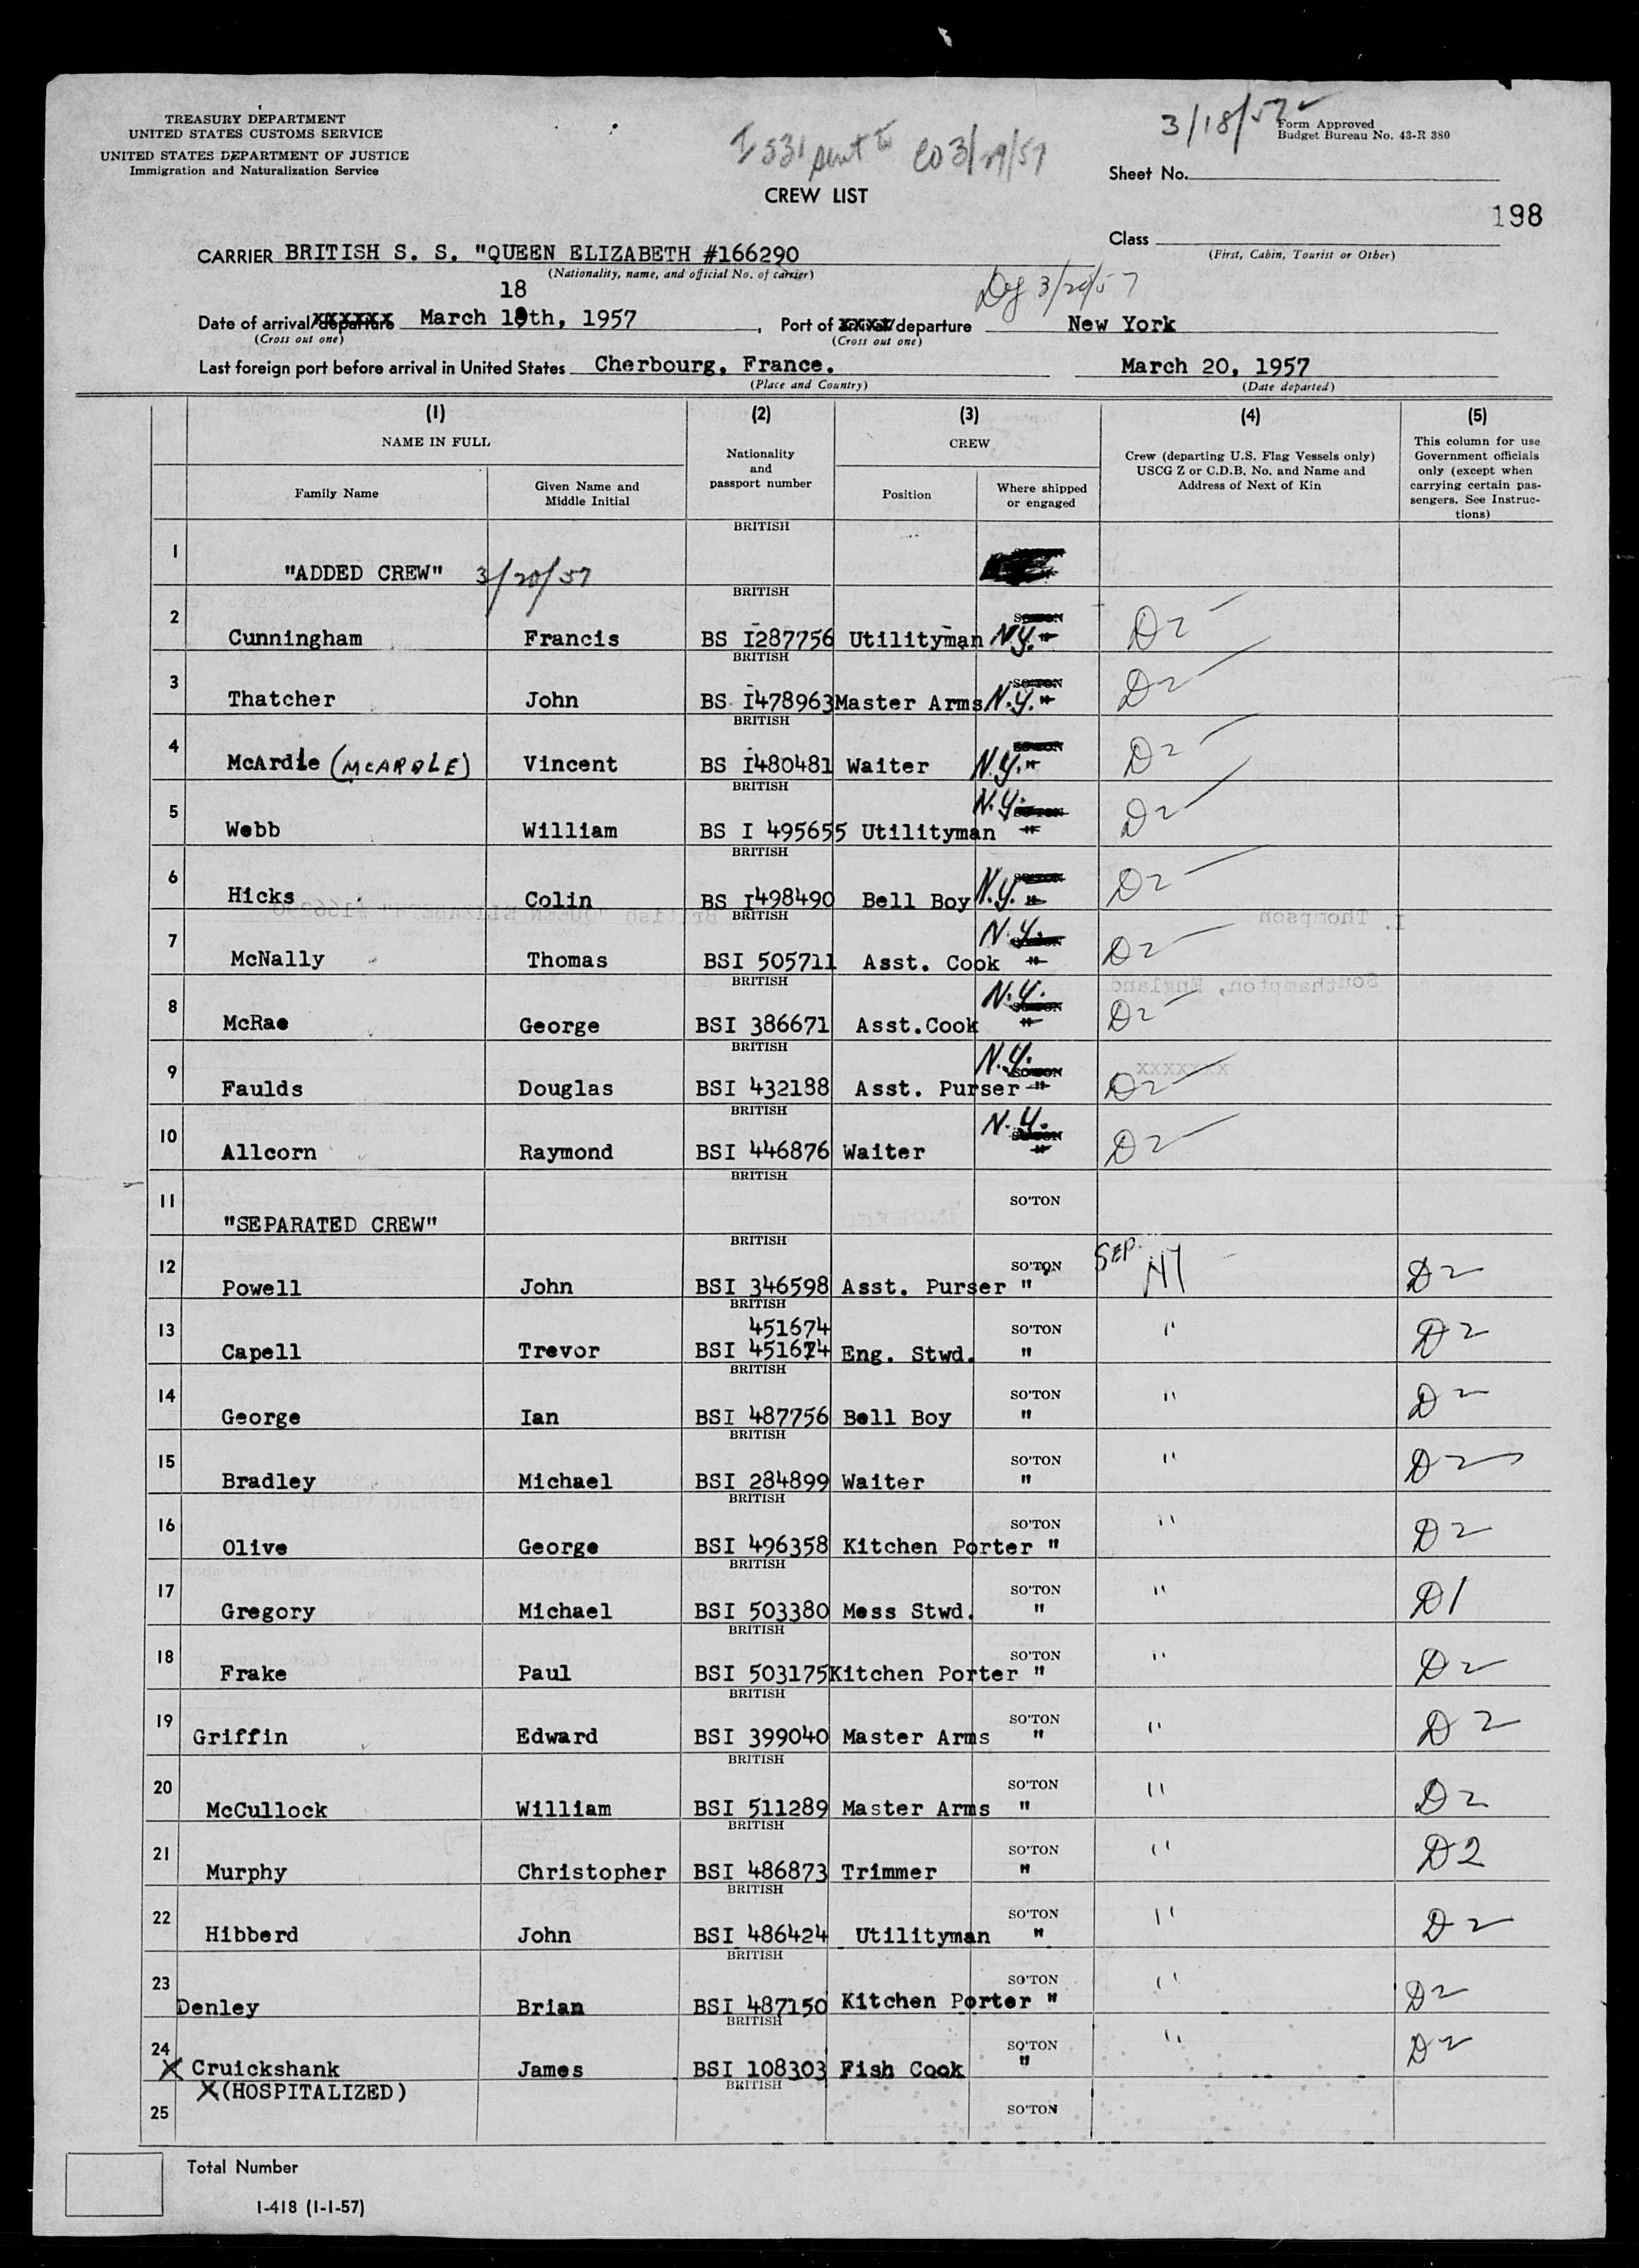 TREASURY DEPARTMENT
UNITED STATES CUSTOMS SERVICE
UNITED STATES DEPARTMENT OF JUSTICE
Immigration and Naturalization Service
I 531 sent to CO 3/29/57
3/18/57
Form Approved
Budget Bureau No. 43-R 380
Sheet No.
CREW LIST
198
Class
(First, Cabin, Tourist or Other)
CARRIER BRITISH S. S. "QUEEN ELIZABETH #166290
(Nationality, name, and official No. of carrier)
3/20/57
18
Date of arrival/departure March 19th, 1957, Port of arrival/departure New York
(Cross out one) (Cross out one)
Last foreign port before arrival in United States Cherbourg, France. March 20, 1957
(Place and Country) (Date departed)
(1) (2) (3) (4) (5)
NAME IN FULL
Family Name
Given Name and
Middle Initial
Nationality
and
passport number
CREW
Position
Where shipped
or engaged
Crew (departing U.S. Flag Vessels only)
USCG Z or C.D.B. No. and Name and
Address of Next of Kin
This column for use
Government officials
only (except when
carrying certain pas-
sengers. See Instruc-
tions)
BRITISH
1 "ADDED CREW" 3/20/57
BRITISH SO'TON
2 Cunningham Francis BS I287756 Utilityman N.Y. " D2
BRITISH SO'TON
3 Thatcher John BS I478963 Master Arms N.Y. " D2
BRITISH SO'TON
4 McArdle (McARDLE) Vincent BS I480481 Waiter N.Y. " D2
BRITISH N.Y. SO'TON
5 Webb William BS I 495655 Utilityman " D2
BRITISH SO'TON
6 Hicks Colin BS I498490 Bell Boy N.Y. " D2
BRITISH N.Y. SO'TON
7 McNally Thomas BSI 505711 Asst. Cook " D2
BRITISH N.Y. SO'TON
8 McRae George BSI 386671 Asst.Cook " D2
BRITISH N.Y. SO'TON
9 Faulds Douglas BSI 432188 Asst. Purser " D2
BRITISH N.Y. SO'TON
10 Allcorn Raymond BSI 446876 Waiter " D2
BRITISH SO'TON
11 "SEPARATED CREW"
BRITISH SO'TON SEP.
12 Powell John BSI 346598 Asst. Purser " NY D2
BRITISH SO'TON
451674
13 Capell Trevor BSI 451674 Eng. Stwd. " " D2
BRITISH SO'TON
14 George Ian BSI 487756 Bell Boy " " D2
BRITISH SO'TON
15 Bradley Michael BSI 284899 Waiter " " D2
BRITISH SO'TON
16 Olive George BSI 496358 Kitchen Porter " " D2
BRITISH SO'TON
17 Gregory Michael BSI 503380 Mess Stwd. " " D1
BRITISH SO'TON
18 Frake Paul BSI 503175 Kitchen Porter " " D2
BRITISH SO'TON
19 Griffin Edward BSI 399040 Master Arms " " D2
BRITISH SO'TON
20 McCullock William BSI 511289 Master Arms " " D2
BRITISH SO'TON
21 Murphy Christopher BSI 486873 Trimmer " " D2
BRITISH SO'TON
22 Hibberd John BSI 486424 Utilityman " " D2
BRITISH SO'TON
23 Denley Brian BSI 487150 Kitchen Porter " " D2
BRITISH SO'TON
24 X Cruickshank James BSI 108303 Fish Cook " " D2
X (HOSPITALIZED) BRITISH
25 SO'TON
Total Number
I-418 (1-1-57)